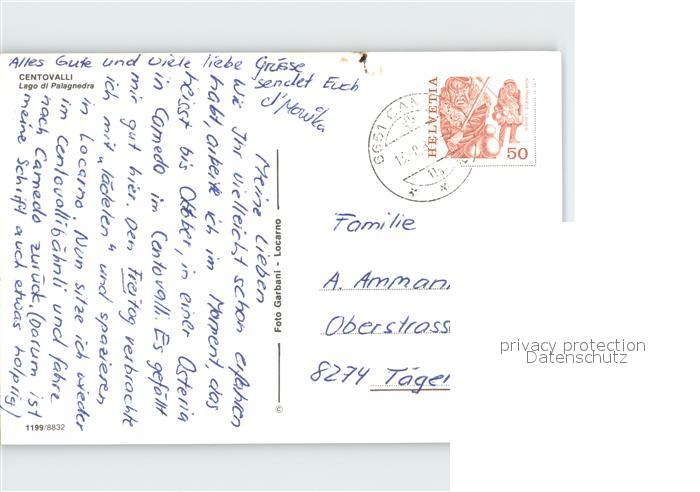 Alles Gute und viele liebe Grüsse
sendet Euch
d'Monika
CENTOVALLI
Lago di Palagnedra
Meine Lieben
Wie Ihr vielleicht schon erfahren
habt, arbeite ich im Moment, das
heisst bis Oktober, in einer Osteria
in Camedo im Centovalli. Es gefällt
mir gut hier. Den Freitag verbrachte
ich mit "lädelen" und spazieren
in Locarno. Nun sitze ich wieder
im Centovallibähnli und fahre
nach Camedo zurück. (Darum ist
meine Schrift auch etwas holprig)
Foto Garbani - Locarno
©
1199/8832
6651 CAM
HELVETIA
50
Familie
A. Amman
Oberstrass
8274 Täger
privacy protection
Datenschutz